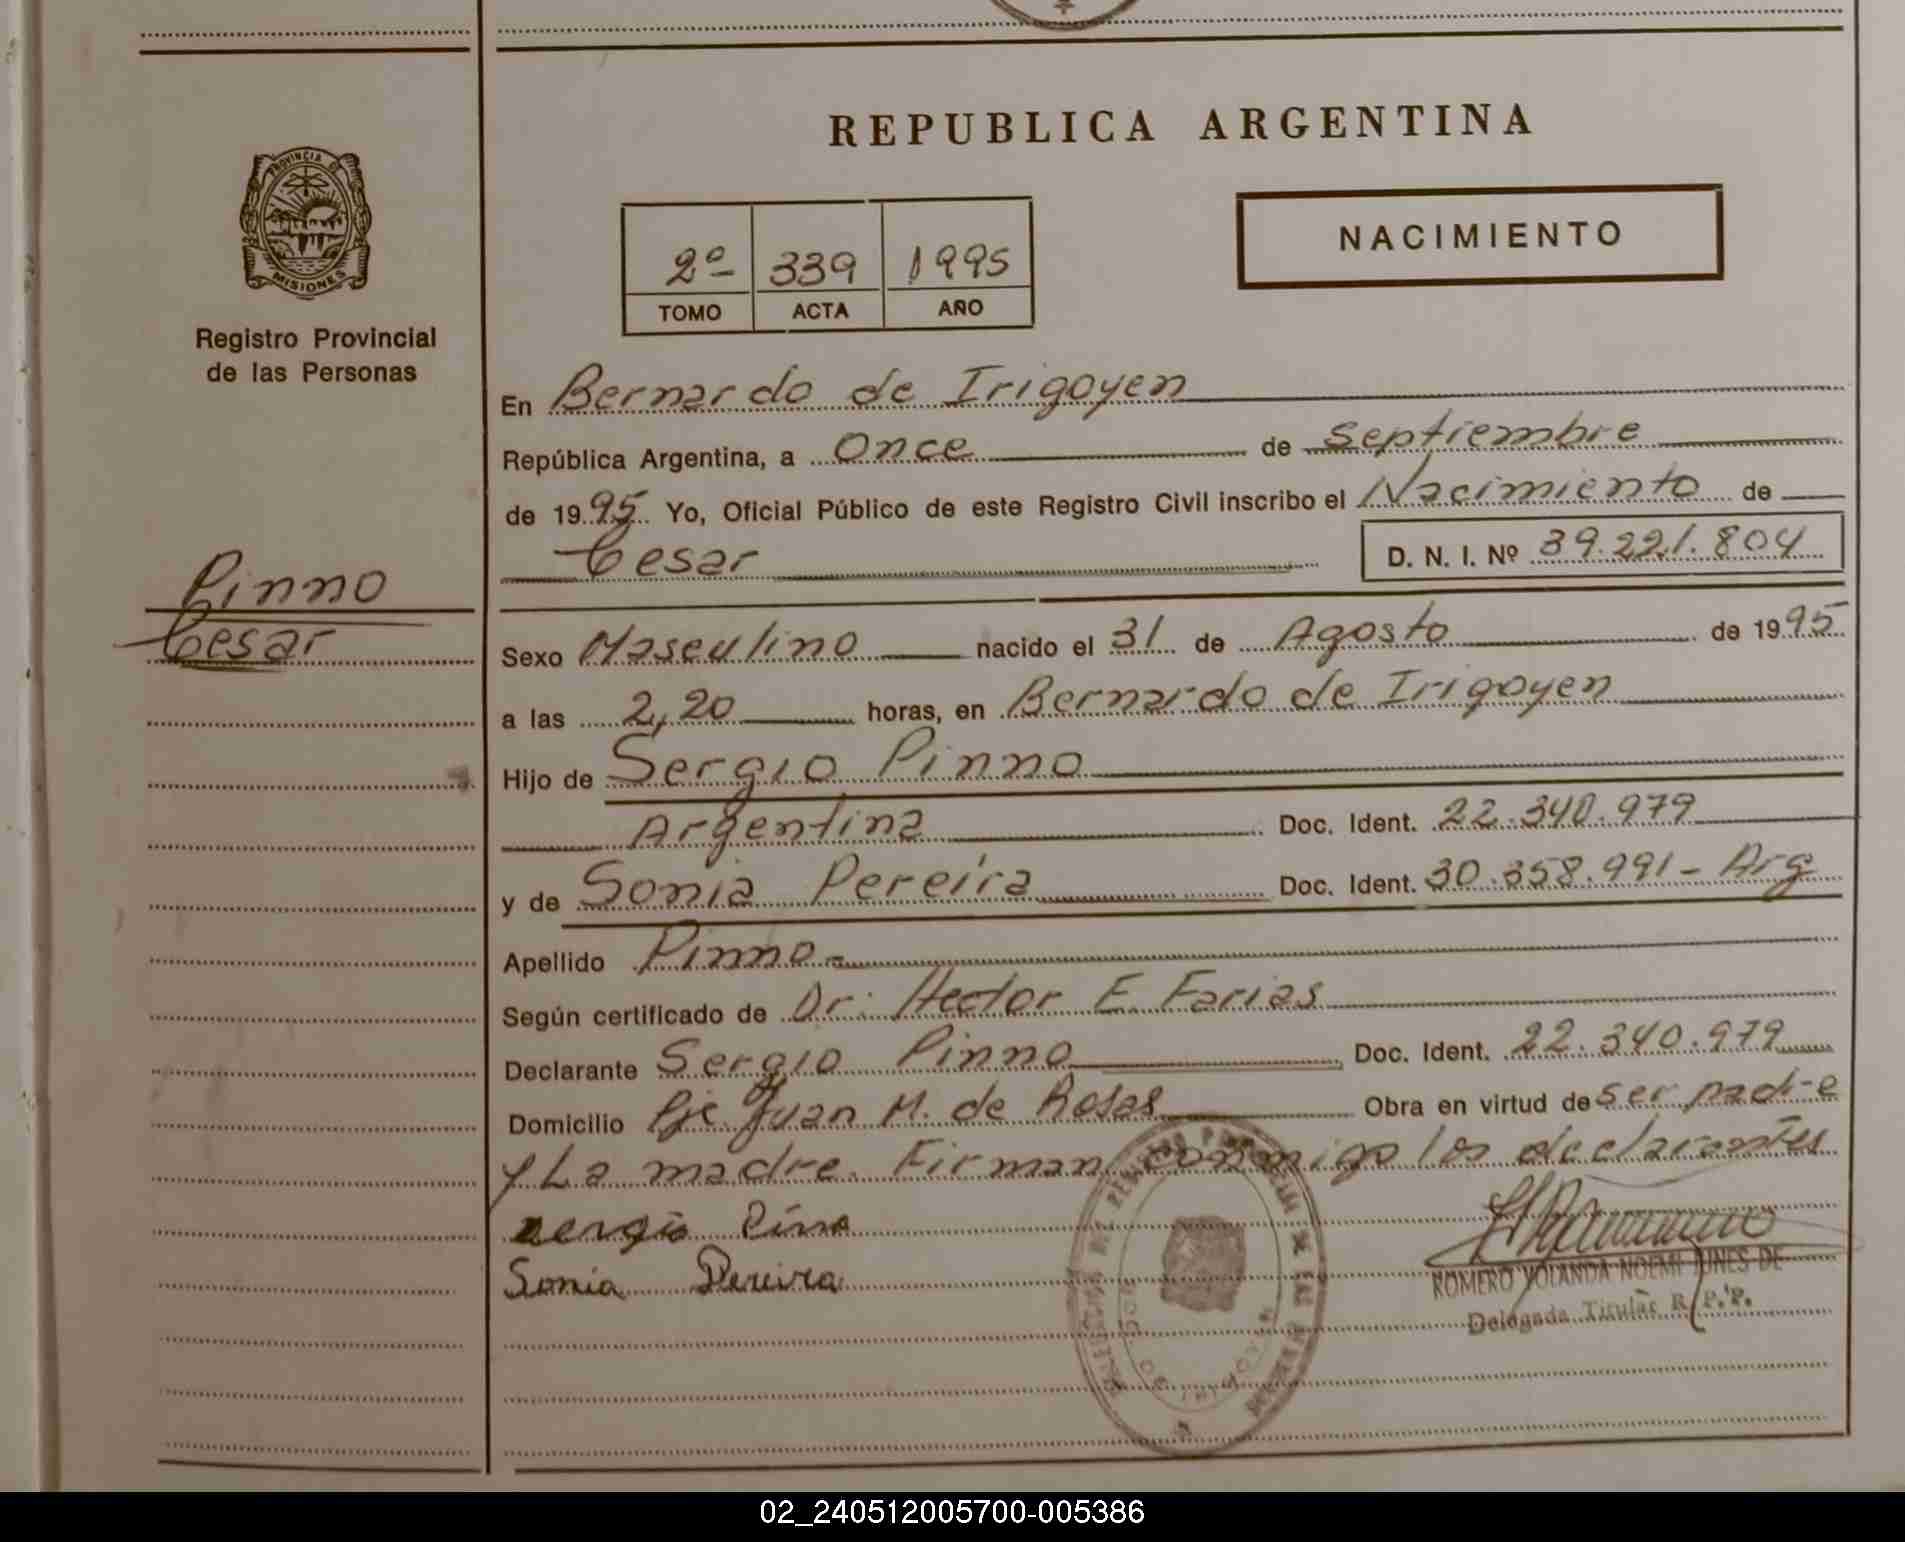 REPUBLICA ARGENTINA
PROVINCIA DE MISIONES
Registro Provincial
de las Personas
2º 339 1995
TOMO ACTA AÑO
NACIMIENTO
Pinno
Cesar
En Bernardo de Irigoyen
República Argentina, a Once de Septiembre
de 1995 Yo, Oficial Público de este Registro Civil inscribo el Nacimiento de
Cesar D. N. I. Nº 39.221.804
Sexo Masculino nacido el 31 de Agosto de 1995
a las 2,20 horas, en Bernardo de Irigoyen
Hijo de Sergio Pinno
Argentina Doc. Ident. 22.340.979
y de Sonia Pereira Doc. Ident. 30.358.991 - Arg
Apellido Pinno-
Según certificado de Dr. Hector E. Farias
Declarante Sergio Pinno Doc. Ident. 22.340.979
Domicilio Pje Juan M. de Rosas Obra en virtud de ser padre
y La madre. Firman conmigo los declarantes
Sonia Pereira
ROMERO YOLANDA NOEMI JUNES DE
Delegada Titular R.P.P.
02_240512005700-005386